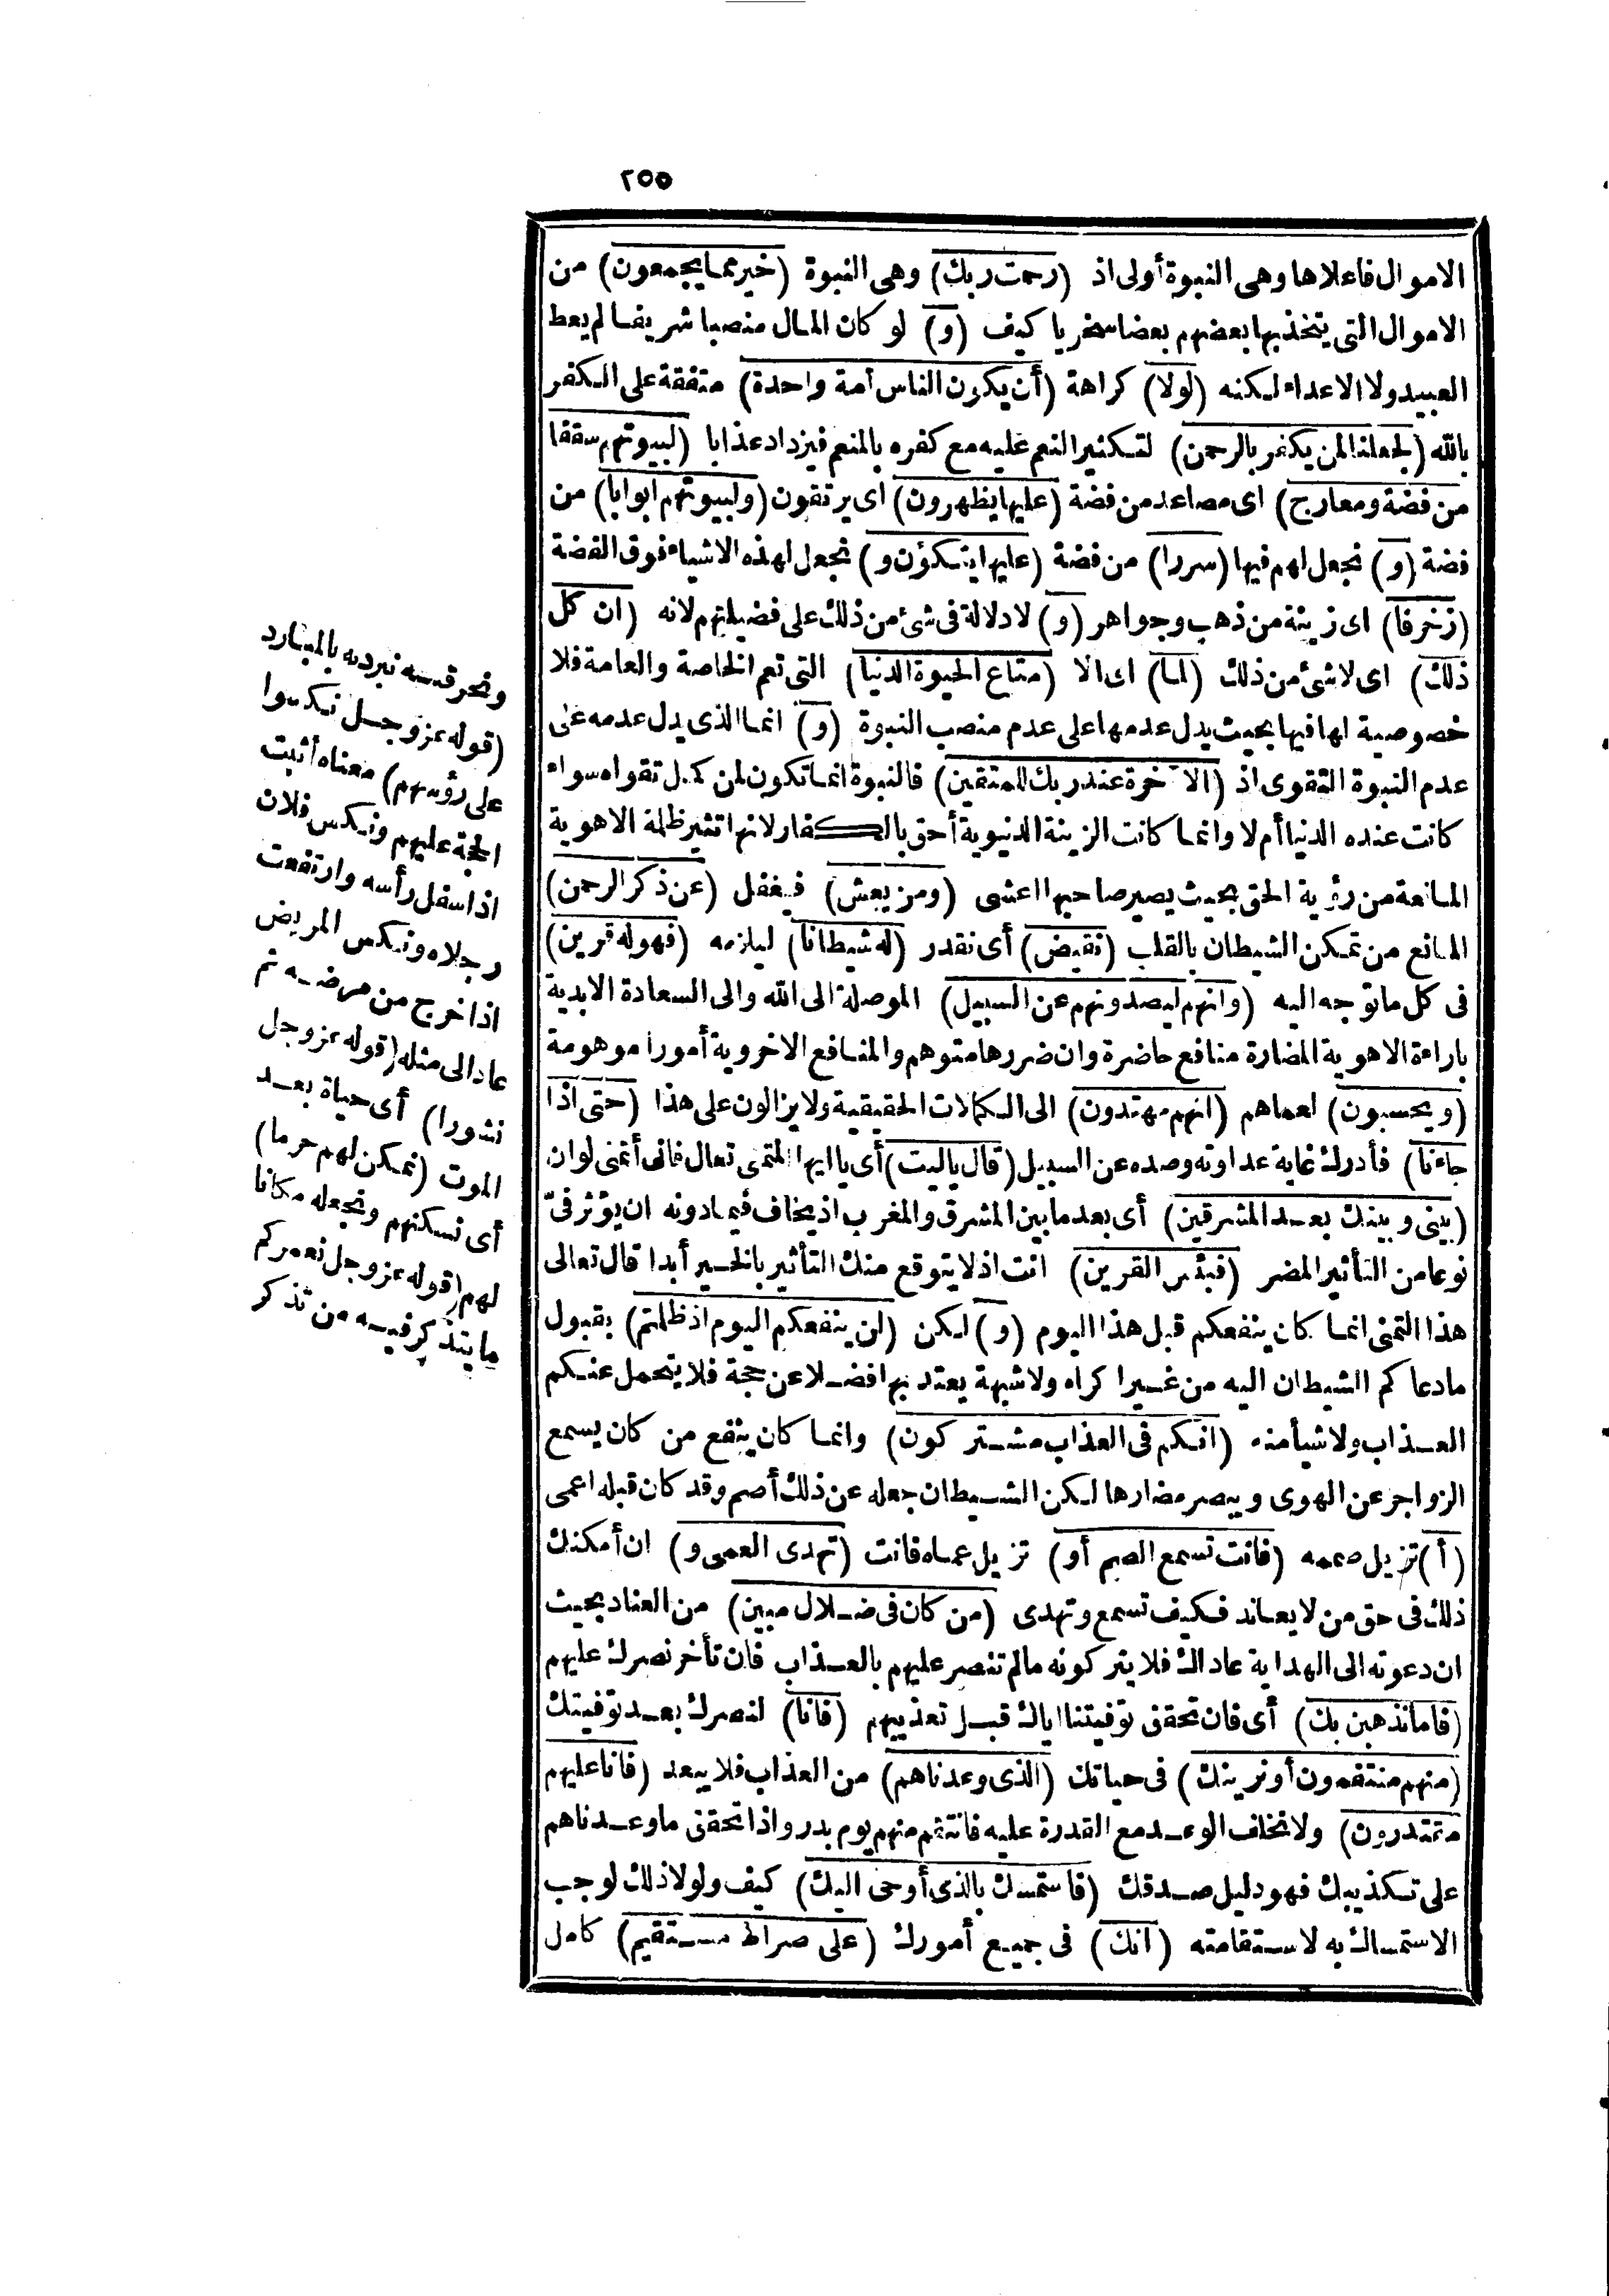 ٢٥٥
الاموال فاعلاها وهى النبوة أولى اذ (رحمت ربك) وهى النبوة (خير مما يجمعون) من
الاموال التى يتخذ بها بعضهم بعضا سخريا كيف (و) لو كان المال منصبا شريفا لم يعط
العبيد ولا الاعداء لكنه (لولا) كراهة (أن يكون الناس أمة واحدة) متفقة على الكفر
بالله (لجعلنا لمن يكفر بالرحمن) لتكثير النعم عليه مع كفره بالمنعم فيزداد عذابا (لبيوتهم سقفا
من فضة ومعارج) اى مصاعد من فضة (عليها يظهرون) اى يرتقون (ولبيوتهم ابوابا) من
فضة (و) نجعل لهم فيها (سررا) من فضة (عليها يتكؤن و) نجعل لهذه الاشياء فوق الفضة
(زخرفا) اى زينة من ذهب وجواهر (و) لا دلالة فى شئ من ذلك على فضيلتهم لانه (ان كل
ذلك) اى لا شئ من ذلك (لما) اى الا (متاع الحيوة الدنيا) التى تعم الخاصة والعامة فلا
خصوصية لها فيها بحيث يدل عدمها على عدم منصب النبوة (و) انما الذى يدل عدمه على
عدم النبوة التقوى اذ (الآخرة عند ربك للمتقين) فالنبوة انما تكون لمن كمل تقواه سواء
كانت عنده الدنيا أم لا وانما كانت الزينة الدنيوية أحق بالكفار لانها تثير ظلمة الاهوية
المانعة من رؤية الحق بحيث يصير صاحبها اعشى (ومن يعش) فيغفل (عن ذكر الرحمن)
المانع من تمكن الشيطان بالقلب (نقيض) أى نقدر (له شيطانا) ليلازمه (فهو له قرين)
فى كل ما توجه اليه (وانهم ليصدونهم عن السبيل) الموصلة الى الله والى السعادة الابدية
باراءة الاهوية المضارة منافع حاضرة وان ضررها متوهم والمنافع الاخروية أمورا موهومة
(ويحسبون) لعماهم (انهم مهتدون) الى الكمالات الحقيقية ولا يزالون على هذا (حتى اذا
جاءنا) فأدرك غاية عداوته وصده عن السبيل (قال ياليت) أى يا ايها المتمنى تعال فانى أتمنى لو ان
(بينى وبينك بعد المشرقين) أى بعد ما بين المشرق والمغرب اذ يخاف فيما دونه ان يؤثر فىّ
نوعا من التأثير المضر (فبئس القرين) انت اذ لا يتوقع منك التأثير بالخير أبدا قال تعالى
هذا التمنى انما كان ينفعكم قبل هذا اليوم (و) لكن (لن ينفعكم اليوم اذ ظلمتم) بقبول
ما دعاكم الشيطان اليه من غير اكراه ولا شبهة يعتد بها فضلا عن حجة فلا يتحمل عنكم
العذاب ولا شيأ منه (انكم فى العذاب مشتركون) وانما كان ينفع من كان يسمع
الزواجر عن الهوى ويبصر مضارها لكن الشيطان جعله عن ذلك أصم وقد كان قبله اعمى
(أ) تزيل صممه (فانت تسمع الصم أو) تزيل عماه فانت (تهدى العمى و) ان أمكنك
ذلك فى حق من لا يعاند فكيف تسمع وتهدى (من كان فى ضلال مبين) من العناد بحيث
ان دعوته الى الهداية عاداك فلا يتركونه ما لم تنصر عليهم بالعذاب فان تأخر نصرك عليهم
(فاما نذهبن بك) أى فان تحقق توفيتنا اياك قبل تعذيبهم (فانا) لننصرك بعد توفيتك
(منهم منتقمون أو نرينك) فى حياتك (الذى وعدناهم) من العذاب فلا يبعد (فانا عليهم
مقتدرون) ولا تخلف الوعد مع القدرة عليه فانتقم منهم يوم بدر واذا تحقق ما وعدناهم
على تكذيبك فهو دليل صدقك (فاستمسك بالذى أوحى اليك) كيف ولولا ذلك لوجب
الاستمساك به لاستقامته (انك) فى جميع أمورك (على صراط مستقيم) كامل
ونحرقنه نبردنه بالمبارد
(قوله عز وجل نكسوا
على رؤسهم) معناه أثبت
الحجة عليهم ونكس فلان
اذا سفل رأسه وارتفعت
رجلاه ونكس المريض
اذا خرج من مرضه ثم
عاد الى مثله (قوله عز وجل
نشورا) أى حياة بعد
الموت (نمكن لهم حرما)
أى نسكنهم ونجعله مكانا
لهم (قوله عز وجل نعمركم
ما يتذكر فيه من تذكر